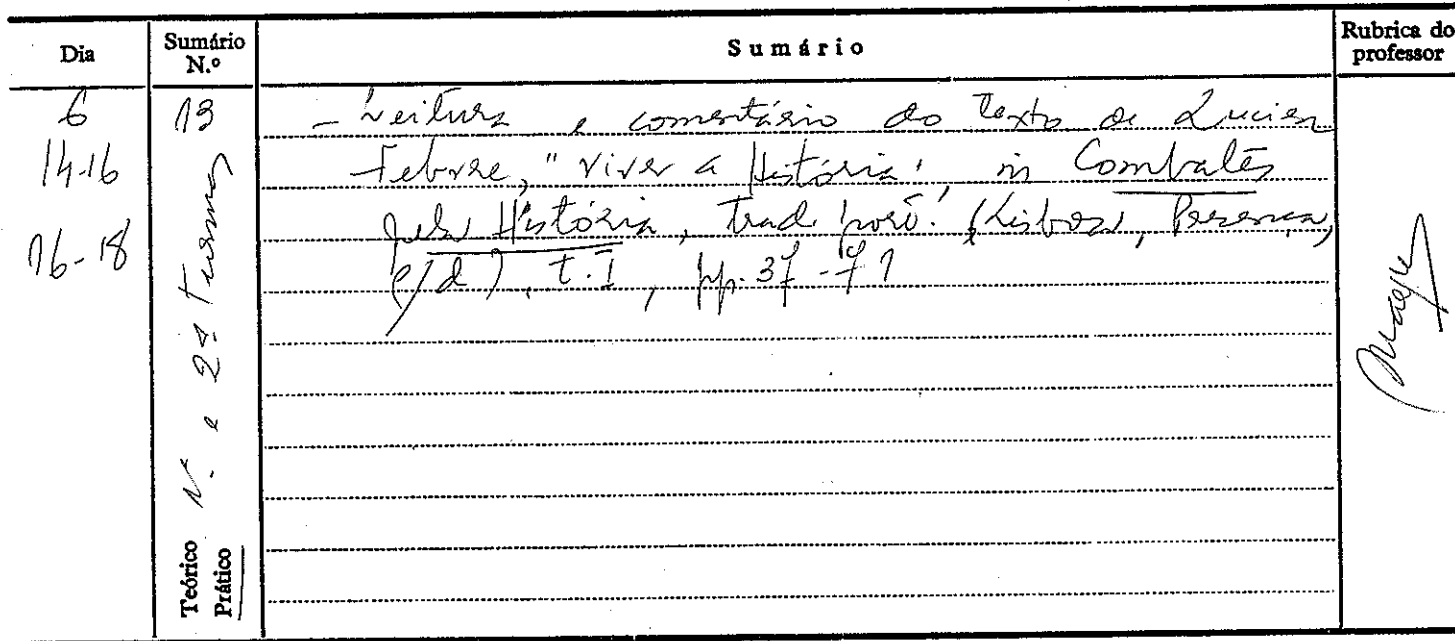 Dia
Sumário N.º
Sumário
Rubrica do professor
6
14-16
16-18
13
1ª e 2ª Turmas
Teórico
Prático
- Leitura e comentário do texto de Lucien
Febvre, "Viver a História", in Combates
pela História, trad. port. (Lisboa, Presença,
s/d), t. I, pp. 37-71